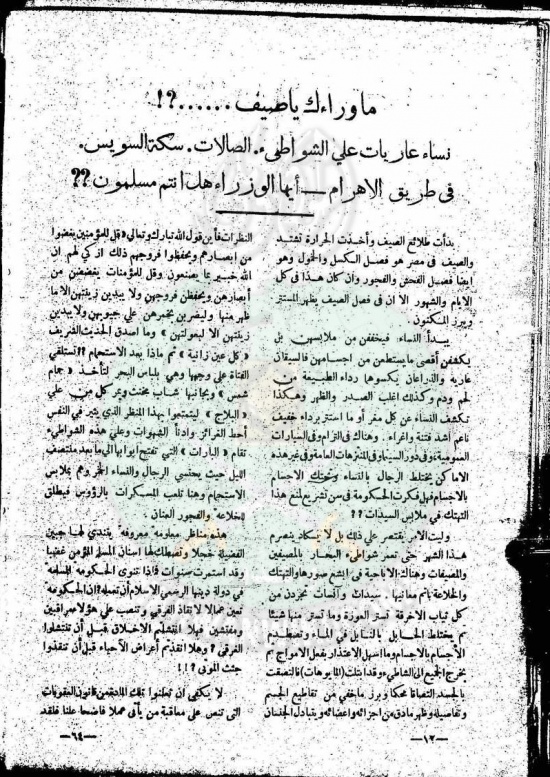 ماوراءك ياصيف......؟!
نساء عاريات علي الشواطيء. الصالات. سكة السويس.
فى طريق الاهرام — أيها الوزراء هل انتم مسلمون ؟؟
بدأت طلائع الصيف وأخذت الحرارة تشتد
والصيف فى مصر هو فصل الكسل والخمول وهو
ايضا فصل الفحش والفجور وان كان هذا فى كل
الايام والشهور الا ان فى فصل الصيف يظهر المستتر
ويبرز المكنون.
يبدأ النساء فيخففن من ملابسهن بل
يكشفن أقصى ما يستطعن من اجسامهن فالسيقان
عاريه والذراعان يكسوها رداء الطبيعة من
لحم ودم وكذلك اغلب الصدر والظهر وهكذا
تكشف النساء عن كل مغر أو ما استتر برداء خفيف
ناعم اشد فتنة واغراء. وهناك فى الترام وفى السيارات
العمومية وفى دور السينما وفى المنتزهات العامة وفى غير هذه
الاماكن يختلط الرجال بالنساء وتحتك الاجسام
بالاجسام فهل فكرت الحكومة فى سن تشريع لمنع هذا
التهتك في ملابس السيدات ؟؟
وليت الامر يقتصر علي ذلك بل لا يكاد ينصرم
هذا الشهر حتى تعمر شواطىء البحار بالمصيفين
والمصيفات وهناك الاباحية فى ابشع صورها والتهتك
والخلاعة باتم معانيها. سيدات وآنسات تجردن من
كل ثياب الا خرقة تستر العورة وما تستر منها شيئا
ثم يختلط الحابل بالنابل فى الماء وتصطدم
الاجسام بالاجسام وما اسهل الاعتذار بفعل الامواج ثم
يخرج الجميع الى الشاطىء وقد ابتلت (المايوهات) فالتصقت
بالجسد التصاقا محكما وبرز ماخفي من تقاطيع الجسم
وتفاصيله وظهر مادق من اجزائه واعضائه ويتبادل الجنسان
—١٢—
النظرات فأين قول الله تبارك وتعالى «قل للمؤمنين يغضوا
من ابصارهم ويحفظوا فروجهم ذلك ازكي لهم ان
الله خبير بما يصنعون. وقل للمؤمنات يغضضن من
أبصارهن ويحفظن فروجهن ولا يبدين زينتهن الا ما
ظهر منها وليضربن بخمرهن علي جيوبهن ولا يبدين
زينتهن الا لبعولتهن» وما اصدق الحديث الشريف
«كل عين زانية» ثم ماذا بعد الاستحمام ؟؟ تستلقي
الفتاة على وجهها وهي بلباس البحر لتأخذ «حمام
شمس» وبجانبها شاب مخنث ويمر كل من علي
«البلاج» ليتمتعوا بهذا المنظر الذي يثير في النفس
أحط الغرائز وادنأ الشهوات وعلي هذه الشواطىء
تقام «البارات» التي تفتح ابوابها الى ما بعد منتصف
الليل حيث يحتسي الرجال والنساء الخمر وهم بملابس
الاستحمام وهنا تلعب المسكرات بالرؤوس فيطلق
للخلاعه والفجور العنان.
هذه مناظر معلومه معروفه يندي لها جبين
الفضيلة خجلا وتصطك لها اسنان المسلم المؤمن غضبا
وقد استمرت سنوات فماذا تنوى الحكومه المسلمه
في دولة دينها الرسمي الاسلام أن تعمله؟ ان الحكومه
تعين عمالا لا نقاذ الغرقي وتنصب علي هؤلا مراقبين
ومفتشين. فهلا انتشلتم الاخلاق قبل أن تنتشلوا
الغرقى ؟ وهلا انقذتم أعراض الأحياء قبل أن تنقذوا
جثث الموتى ؟!!
لا يكفي ان تعلنوا تلك المادة من قانون العقوبات
التى تنص علي معاقبة من يأتى عملا فاضحا علنا فلقد
—٦٤—